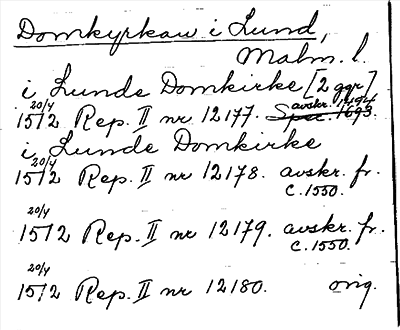 Domkyrkan i Lund,
Malm. l.
i Lunde Domkirke [2 ggr]
20/4 avskr. 1494
1512 Rep. II nr 12177. Spec. 1693.
i Lunde Domkirke
20/4
1512 Rep. II nr 12178. avskr. fr.
c. 1550.
20/4
1512 Rep. II nr 12179. avskr. fr.
c. 1550.
20/4
1512 Rep. II nr 12180. orig.